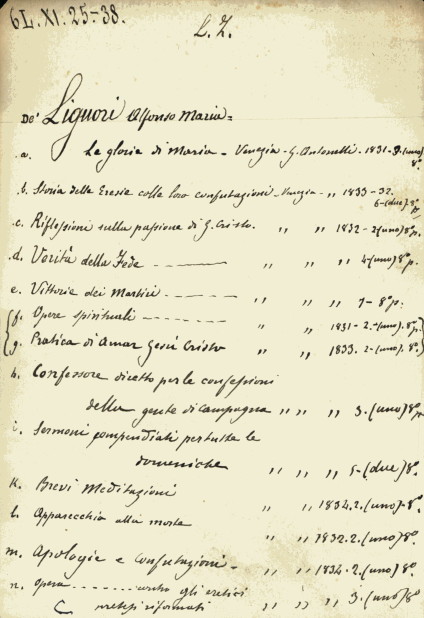 6L.XI.25-38.
L. Z.
De' Liguori Alfonso Maria=
.a. Le glorie di Maria - Venezia - G. Antonelli - 1831 - 3-(uno) 8º
.b. Storia delle Eresie colle loro confutazioni - Venezia - " 1833-32. 6-(due) 8º p.
.c. Riflessioni sulla passione di G. Cristo. " " 1832 - 2(uno) 8º p.
.d. Verità della Fede - " " " 4-(uno) 8º p.
e. Vittorie dei Martiri - " " " 8º p.
f. Opere spirituali - " " 1831 - 2.-(uno). 8º
g. Pratica di Amar Gesù Cristo " " 1833. 2-(uno). 8º
h. Confessore diretto per le confessioni
della gente di Campagna " " " 3.(uno) 8º p
i. Sermoni compendiati per tutte le
domeniche " " " 5-(due) 8º.
k. Brevi Meditazioni " " " 1834.2.(uno)-8º
l. Apparecchio alla morte " " 1832.2.(uno) 8º
m. Apologie e confutazioni - " " " 1834-2.(uno) 8º
n. Opera ........ contro gli eretici
pretesi riformati " " " 3.(uno) 8º